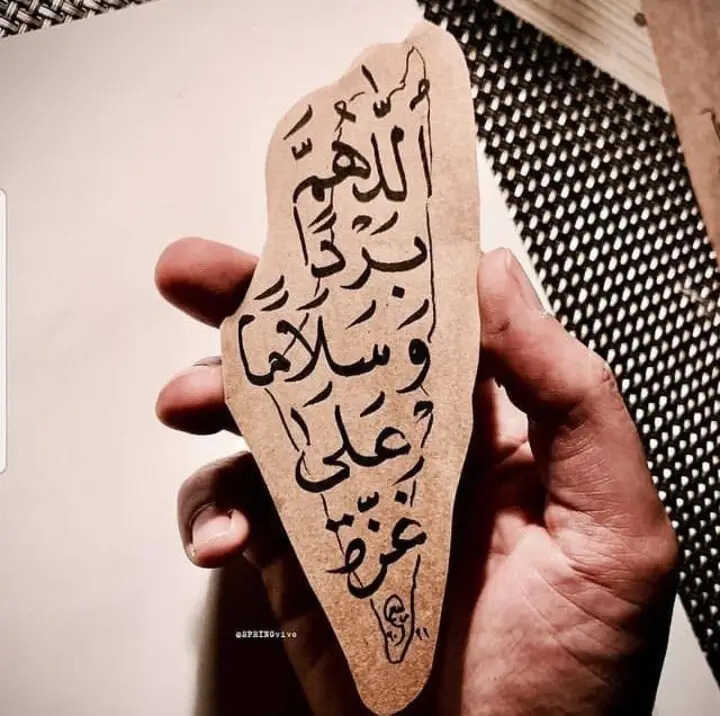 اللّهُمَّ
بَرْدًا
وَسَلَامًا
عَلَى
غزّة
@SPRINGvivo